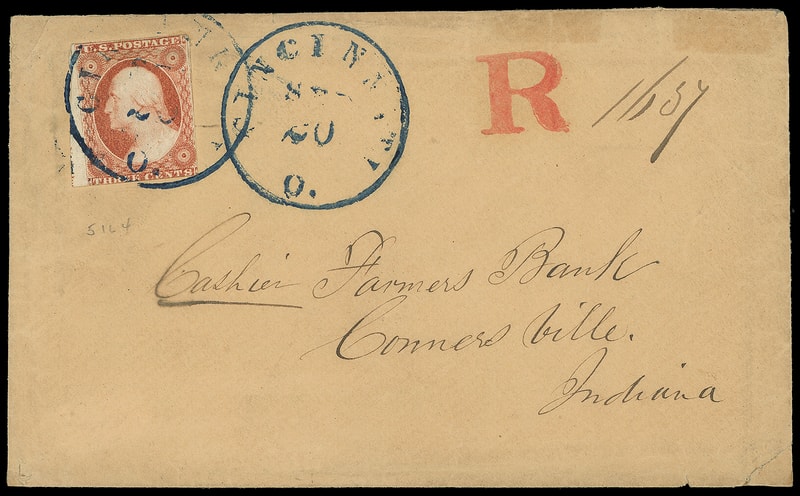 U.S. POSTAGE
THREE CENTS
CINCINNATI
20
O.
R
1637
5164
Cashier Farmers Bank
Conners Ville.
Indiana